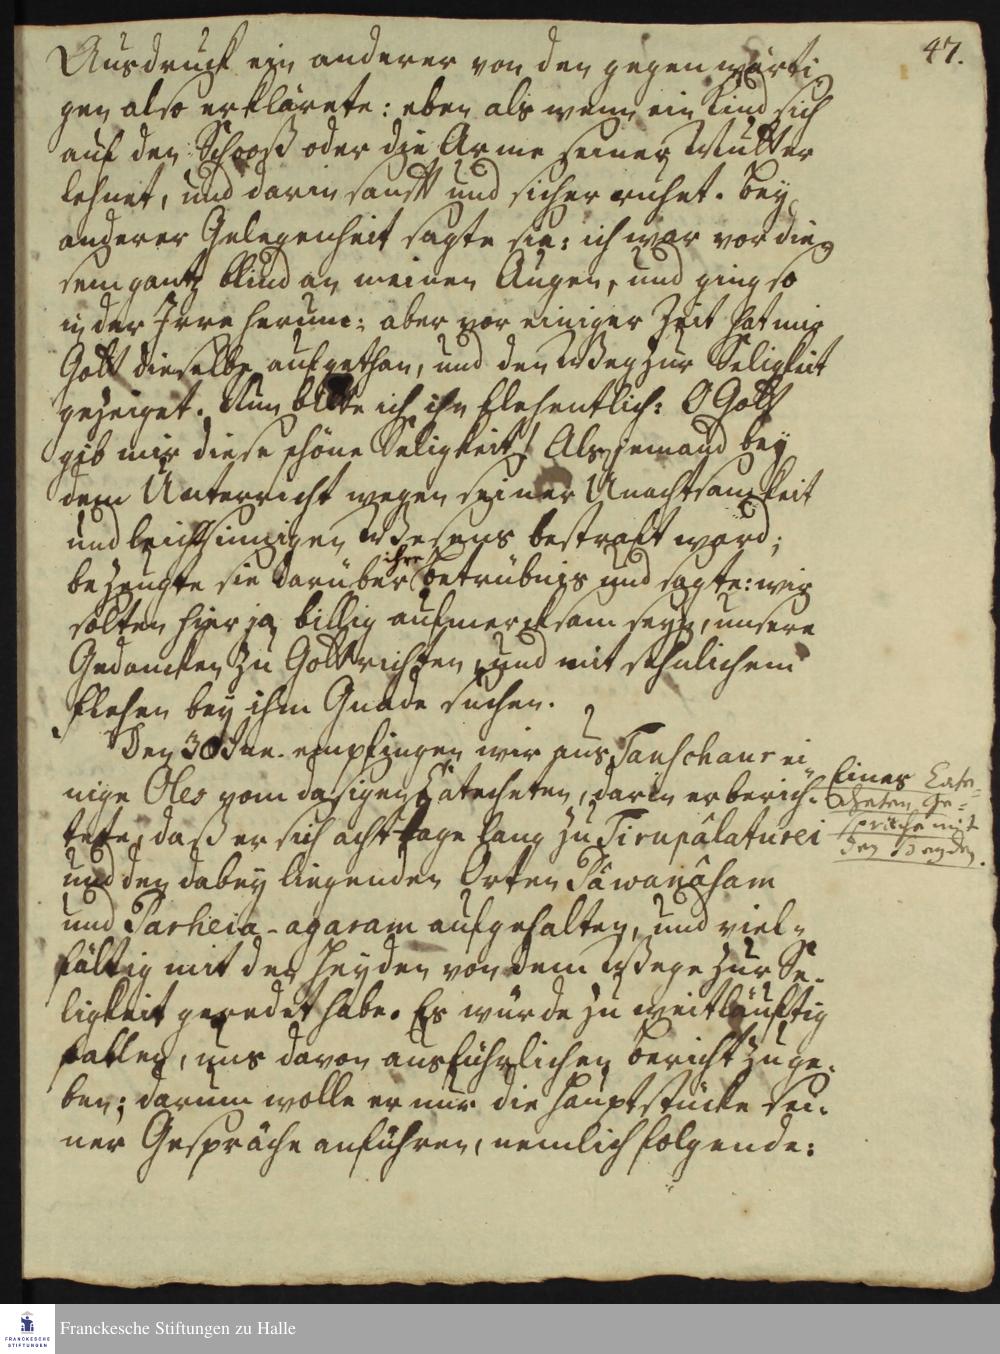 47.
Ausdruck ein anderer von den gegenwärti
gen also erklärete: eben als wenn ein Kind sich
auf den Schooß oder die Arme seiner Mutter
lehnet, und darin sanfft und sicher ruhet. Bey
anderer Gelegenheit sagte sie: ich war vor die-
sem gantz blind an meinen Augen, und ging so
in der Irre herum: aber vor einiger Zeit hat mir
Gott dieselbe aufgethan, und den Weg zur Seligkeit
gezeiget. Nun bitte ich ihn flehentlich: O Gott
gib mir diese schöne Seligkeit! Als jemand bey
dem Unterricht wegen seiner Unachtsamkeit
und leichtsinnigen Wesens bestraft ward;
bezeugte sie darüber ihre Betrübnis und sagte: wir
solten hier ja billig aufmercksam seyn, unsere
Gedancken zu Gott richten, und mit sehnlichem
flehen bey ihm Gnade suchen.
Den 30 empfingen wir aus Tanschaur ei
nige Oles vom dasigen Catecheten, darin er berich-
tete, daß er sich acht tage lang zu Tirupâlaturei
und den dabey liegenden Orten Pâwanâsam
und Parheia-agaram aufgehalten, und viel-
fältig mit den Heyden von dem Wege zur Se-
ligkeit geredet habe. Es würde zu weitläuftig
fallen, uns davon ausführlichen Bericht zu ge-
ben; darum wolle er nur die Hauptstücke sei-
ner Gespräche anführen, nemlich folgende:
Eines Cate-
cheten Ge-
spräche mit
den Heyden.
Franckesche Stiftungen zu Halle
FRANCKESCHE
STIFTUNGEN